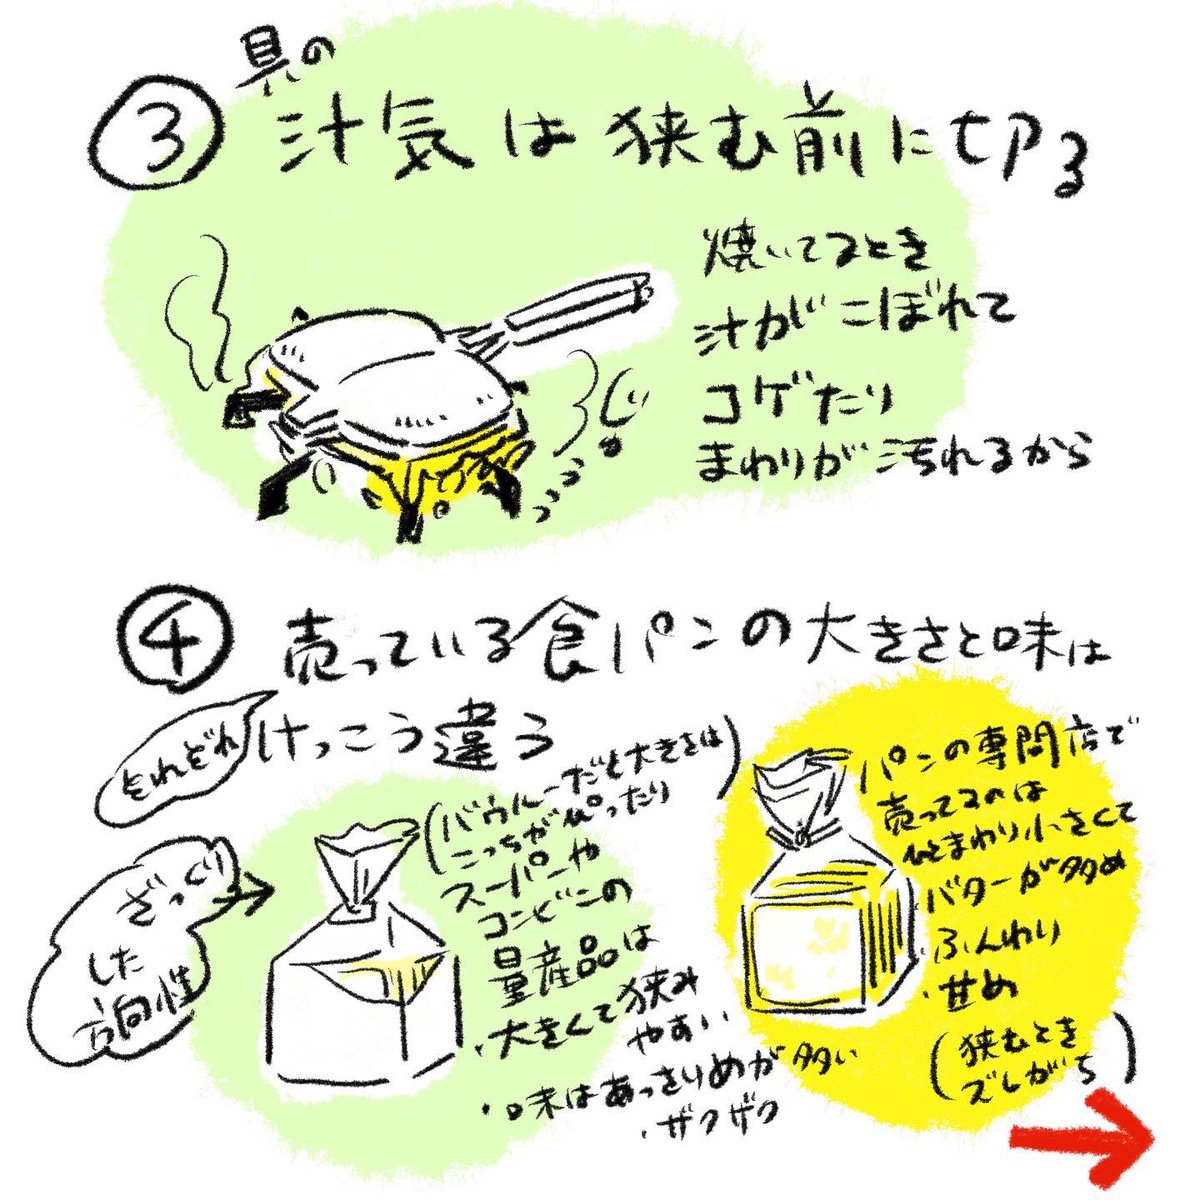 具の
③ 汁気は狭む前に切る
焼いてるとき
汁がこぼれて
コゲたり
まわりが汚れるから
じゅ
④ 売っている食パンの大きさと味は
それぞれ
けっこう違う
ざっくり
した
方向性
(バウルーだと大きさは
こっちがぴったり)
スーパーや
コンビニの
量産品は
・大きくて狭み
やすい
・味はあっさりめが多い
・ザクザク
パンの専門店で
売ってるのは
ひとまわり小さくて
バターが多め
・ふんわり
・甘め
(狭むとき
ズレがち)